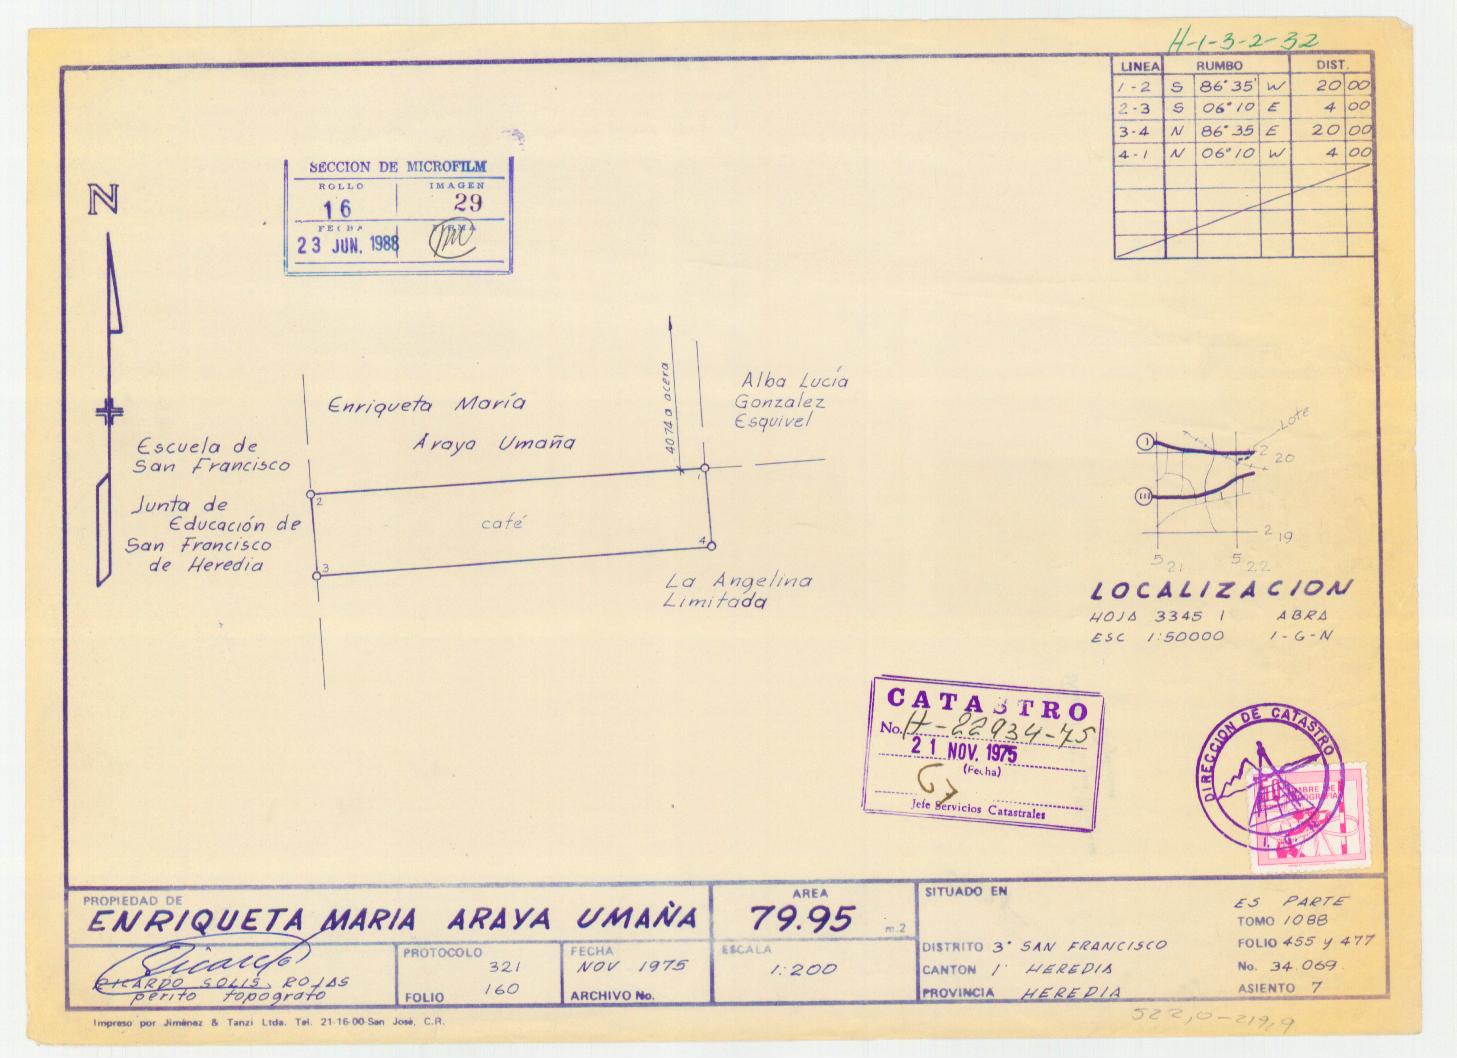 H-1-3-2-32
LINEA RUMBO DIST.
1-2 S 86°35' W 20 00
2-3 S 06°10 E 4 00
3-4 N 86°35 E 20 00
4-1 N 06°10 W 4 00
SECCION DE MICROFILM
ROLLO IMAGEN
16 29
FECHA FIRMA
23 JUN. 1988
N
40 74 a acera
Alba Lucía
Gonzalez
Esquivel
Enriqueta María
Araya Umaña
Escuela de
San Francisco
Junta de
Educación de
San Francisco
de Heredia
1
2
3
4
café
La Angelina
Limitada
Lote
I
III
2 20
2 19
5 21
5 22
LOCALIZACION
HOJA 3345 I ABRA
ESC 1:50000 I-G-N
CATASTRO
No. H-22934-75
21 NOV. 1975
(Fecha)
Jefe Servicios Catastrales
DIRECCION DE CATASTRO
I. G. N.
PROPIEDAD DE
ENRIQUETA MARIA ARAYA UMAÑA
AREA
79.95 m.2
RICARDO SOLIS ROJAS
perito topografo
PROTOCOLO
321
FOLIO 160
FECHA
NOV 1975
ARCHIVO No.
ESCALA
1:200
SITUADO EN
DISTRITO 3° SAN FRANCISCO
CANTON 1° HEREDIA
PROVINCIA HEREDIA
ES PARTE
TOMO 1088
FOLIO 455 y 477
No. 34.069
ASIENTO 7
Impreso por Jiménez & Tanzi Ltda. Tel. 21-16-00-San José, C.R.
522,0-219,9